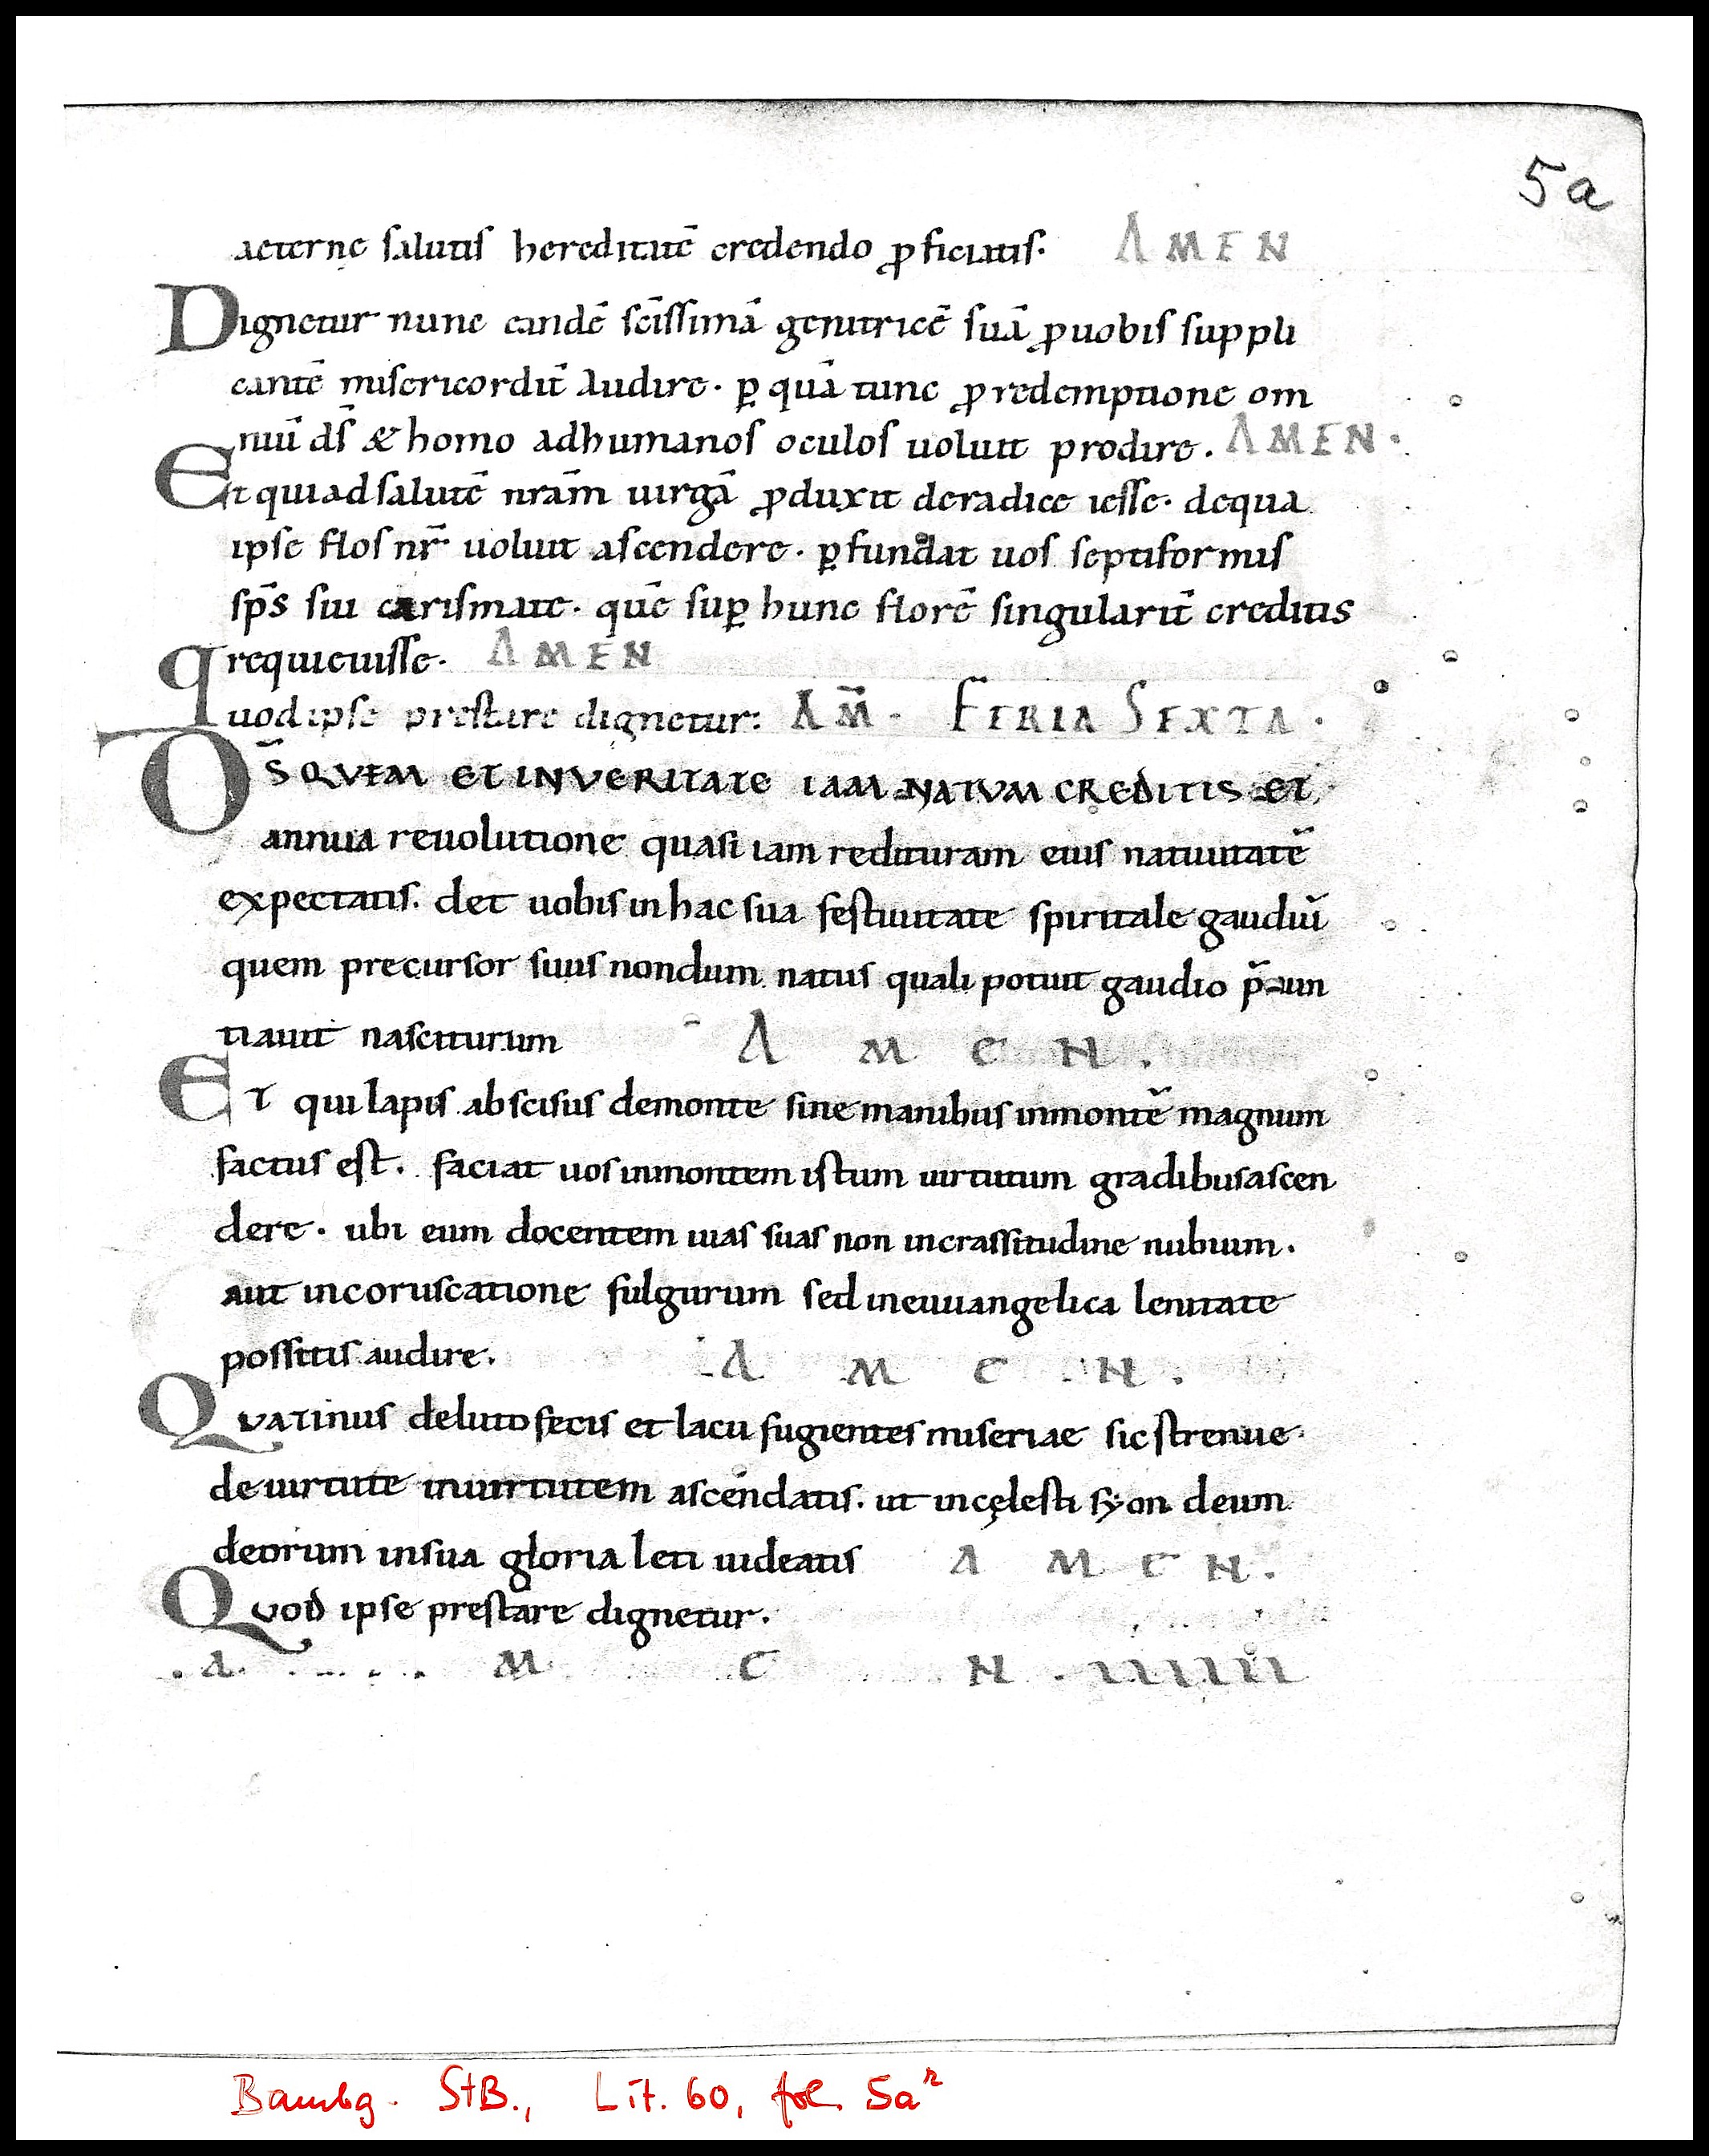 5a
aeternę salutis hereditatē credendo ꝓficiatis. AMEN
Dignetur nunc eandē scīssimā genitricē suā ꝓuobis suppli
cantē misericordit̄ audire. ꝑ quā tunc ꝓ redemptione om
niū ds̄ & homo adhumanos oculos uoluit prodire. AMEN.
Et quiadsalutē nrām uirgā ꝓduxit deradice iesse. dequa
ipse flos nr̄ uoluit ascendere. ꝑfundat uos septiformis
sps̄ sui carismate. quē suꝑ hunc florē singularit̄ creditis
requieuisse. AMEN
quod ipse prestare dignetur: AM̄. FERIA SEXTA.
DS̄ QVEM ET INVERITATE IAM NATVM CREDITIS ET
annua reuolutione quasi iam redituram eius natiuitatē
expectatis. det uobis in hac sua festiuitate spiritale gaudiū
quem precursor suus nondum natus quali potuit gaudio p̄nun
tiauit nasciturum AMEN.
Et qui lapis abscisus demonte sine manibus inmontē magnum
factus est. faciat uos inmontem istum uirtutum gradibus ascen
dere. ubi eum docentem uias suas non incrassitudine nubium.
aut incoruscatione fulgurum sed ineuuangelica lenitate
possitis audire. AMEN.
QVATinus deluto fecis et lacu fugientes miseriae sic strenue
de uirtute inuirtutem ascendatis. ut incęlesti syon deum
deorum insua gloria leti uideatis AMEN.
QVOD ipse prestare dignetur.
. A M E N .
Bambg. StB., Lit. 60, fol. 5aʳ